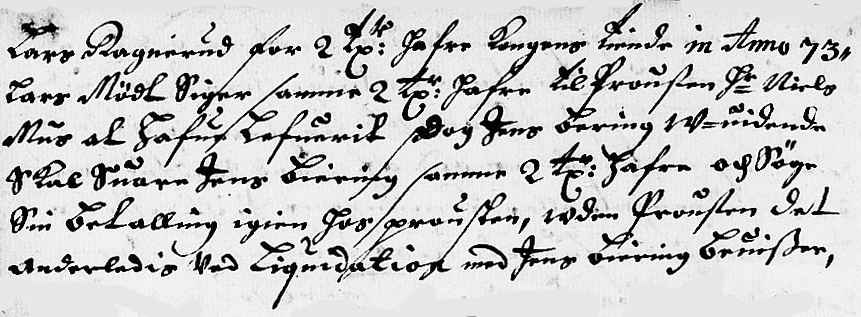 Lars Ragnerud for 2 tr: hafre Kongens tiende in Anno 73,
Lars Mødt Siger samme 2 tr: hafre til Prousten Hr Niels
Mus at hafue Lefuerit, dog Jens Biering W=uidende
Skal Suare Jens Biering samme 2 tr: hafre och Søge
Sin betalling igien hos prousten, uden Prousten det
Anderledis Ved Liquidation med Jens Biering beuiser,